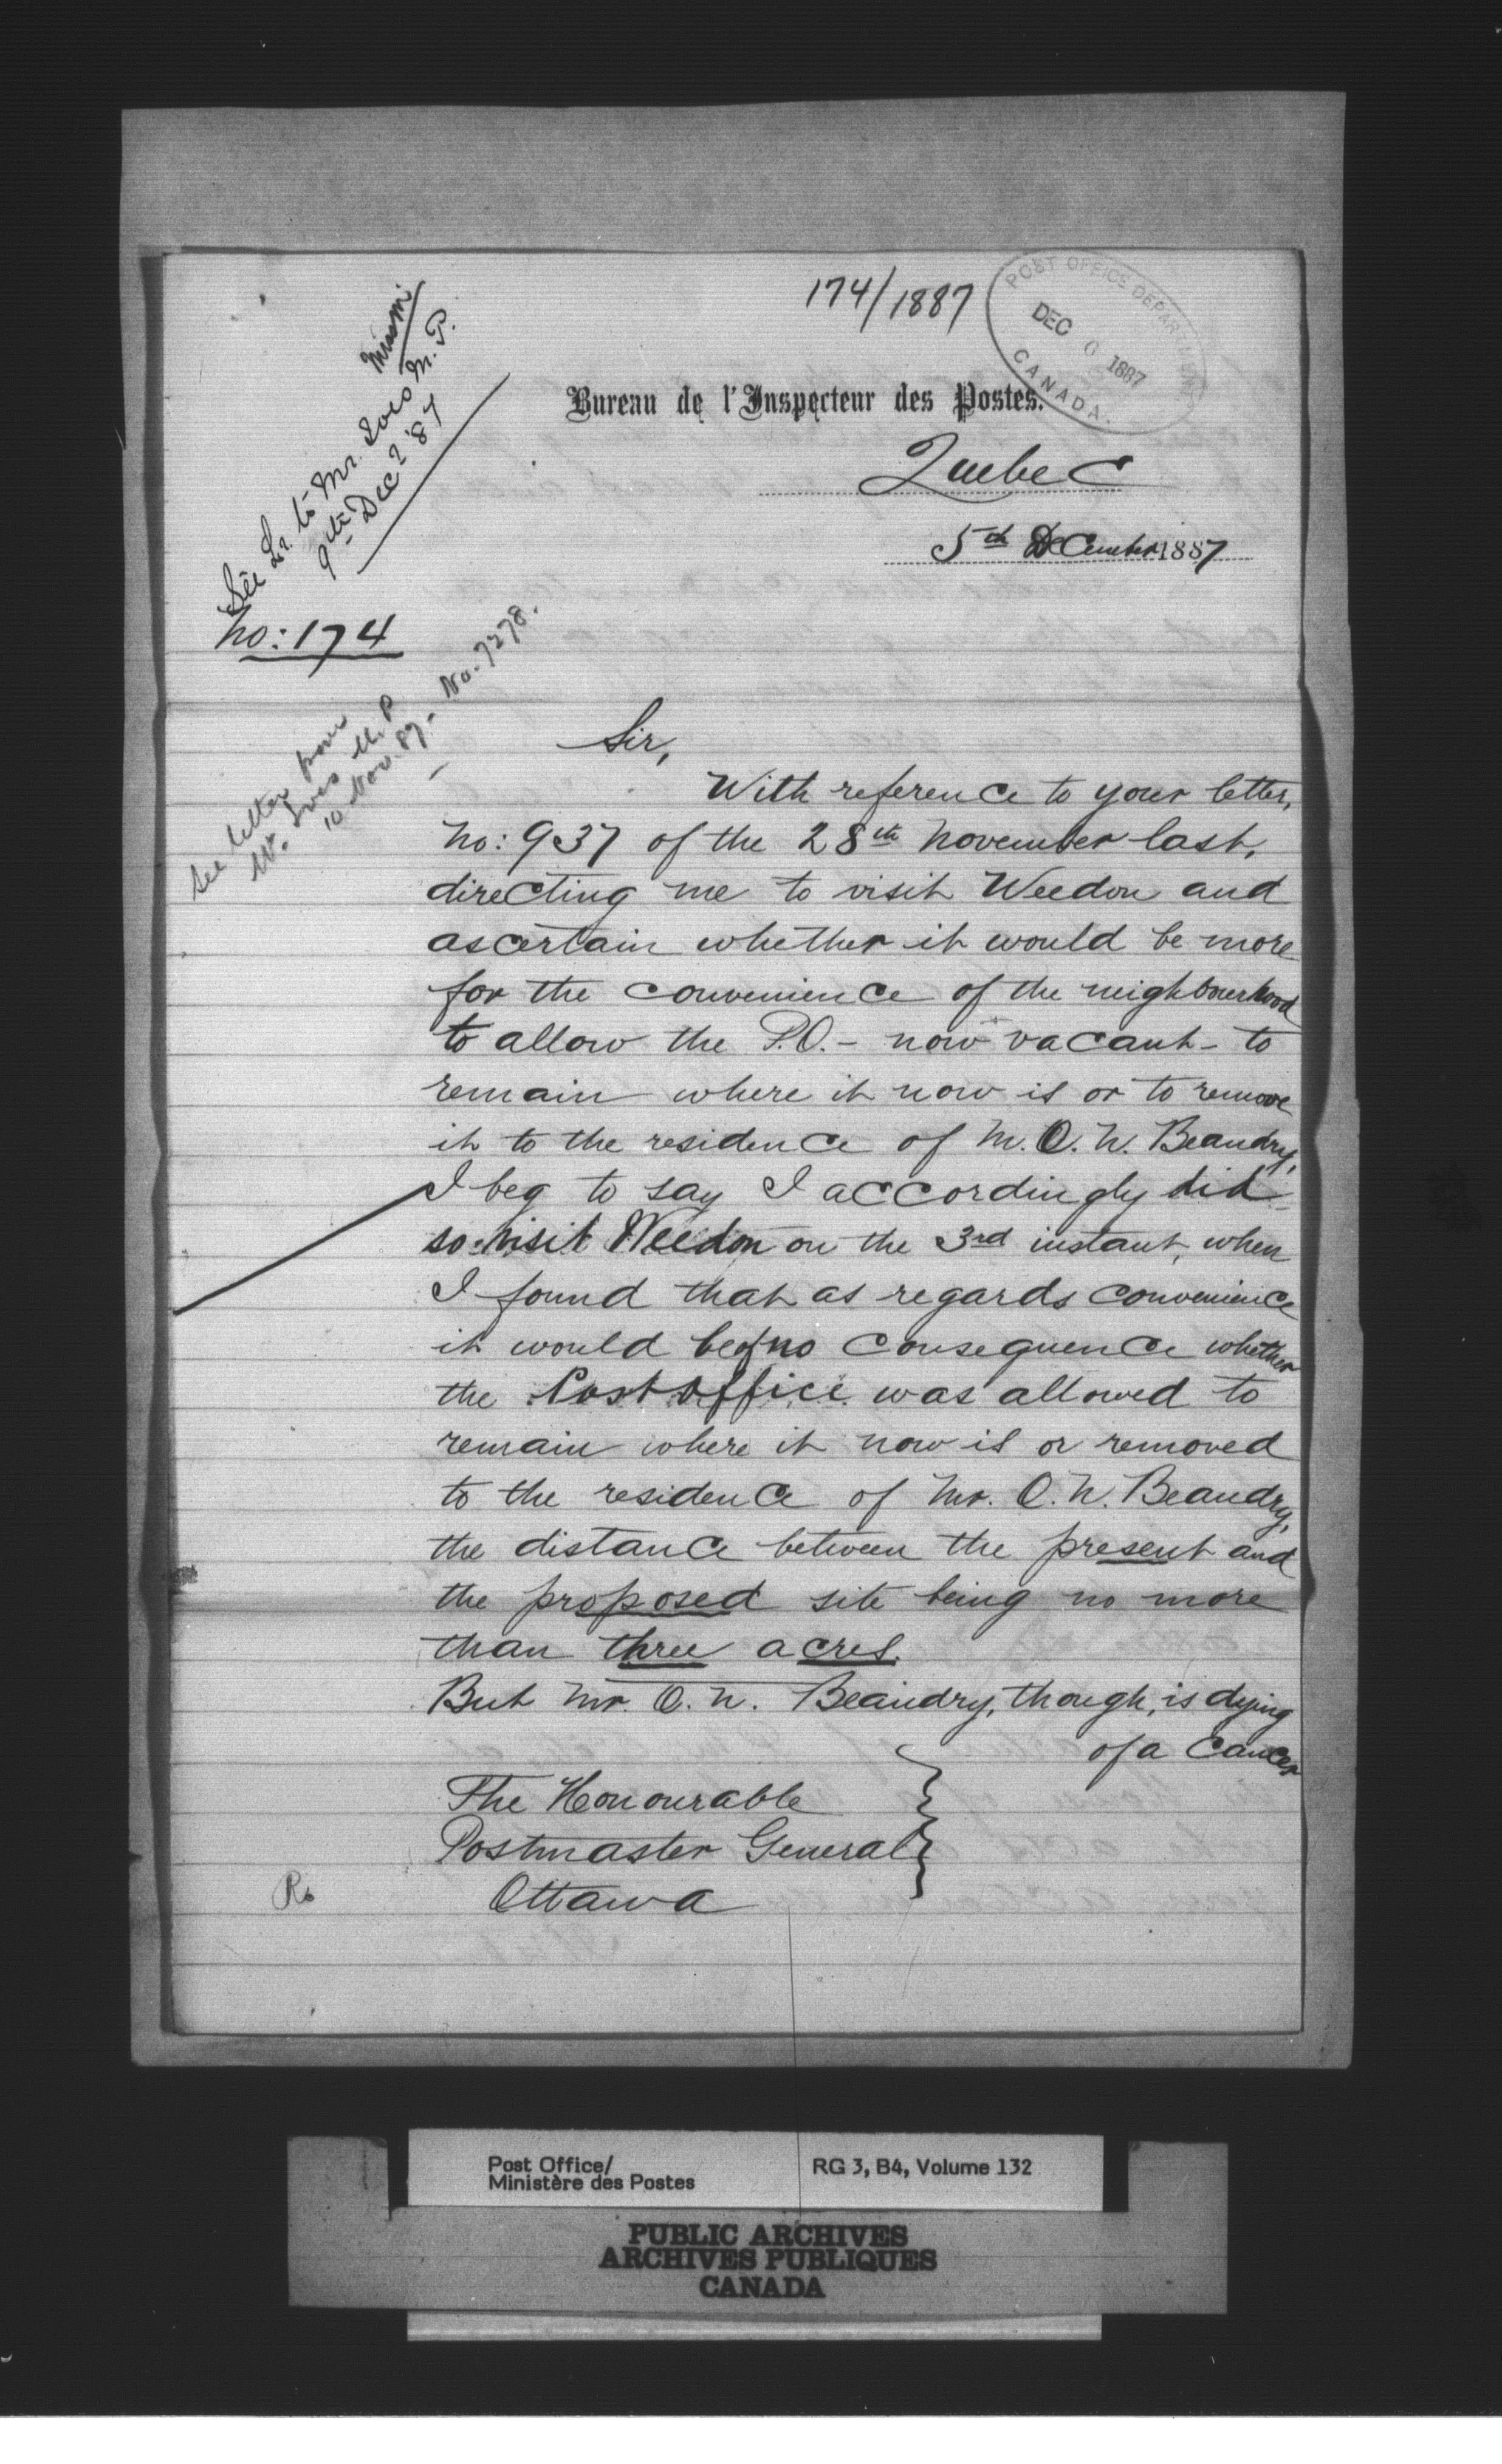 174/1887
POST OFFICE DEPARTMENT
DEC 6 1887
CANADA.
Bureau de l'Inspecteur des Postes.
Quebec
5th December 1887
See Lr. to Mr. Ives M.P.
9th Decr '87
No: 174
See letter from
Mr. Ives M.P
10 Nov. 87 - No. 7278.
Sir,
With reference to your letter,
No: 937 of the 28th November last,
directing me to visit Weedon and
ascertain whether it would be more
for the convenience of the neighbourhood
to allow the P.O. - now vacant - to
remain where it now is or to remove
it to the residence of M. O. N. Beaudry,
I beg to say I accordingly did
so visit Weedon on the 3rd instant, when
I found that as regards convenience
it would be of no consequence whether
the Post Office was allowed to
remain where it now is or removed
to the residence of Mr. O. N. Beaudry,
the distance between the present and
the proposed site being no more
than three acres.
But Mr. O. N. Beaudry, though, is dying
of a Cancer
The Honourable
Postmaster General
Ottawa
Post Office/
Ministère des Postes
RG 3, B4, Volume 132
PUBLIC ARCHIVES
ARCHIVES PUBLIQUES
CANADA